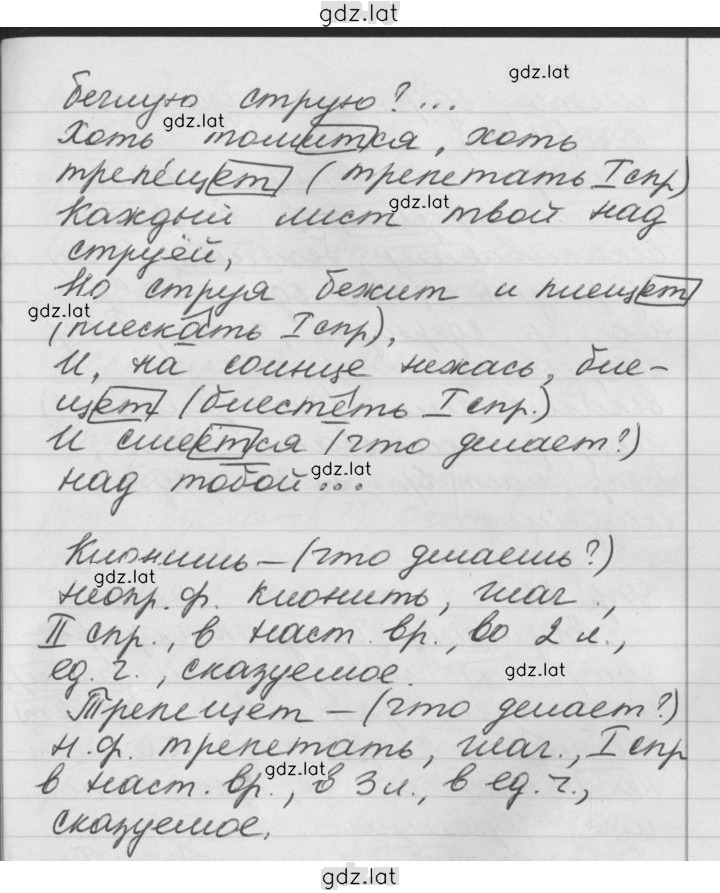 gdz.lat
gdz.lat
беглую струю?...
gdz.lat
Хоть томится, хоть
трепещет (трепетать I спр)
gdz.lat
Каждый лист твой над
струёй,
Но струя бежит и плещет
gdz.lat
(плескать I спр),
И, на солнце нежась, бле-
щет (блестеть I спр.)
И смеётся (что делает?)
gdz.lat
над тобой...
Клонишь – (что делаешь?)
gdz.lat
неопр. ф. клонить, глаг.,
II спр., в наст. вр., во 2 л.,
gdz.lat
ед. ч., сказуемое.
Трепещет – (что делает?)
н. ф. трепетать, глаг., I спр
gdz.lat
в наст. вр., в 3 л., в ед. ч.,
сказуемое.
gdz.lat